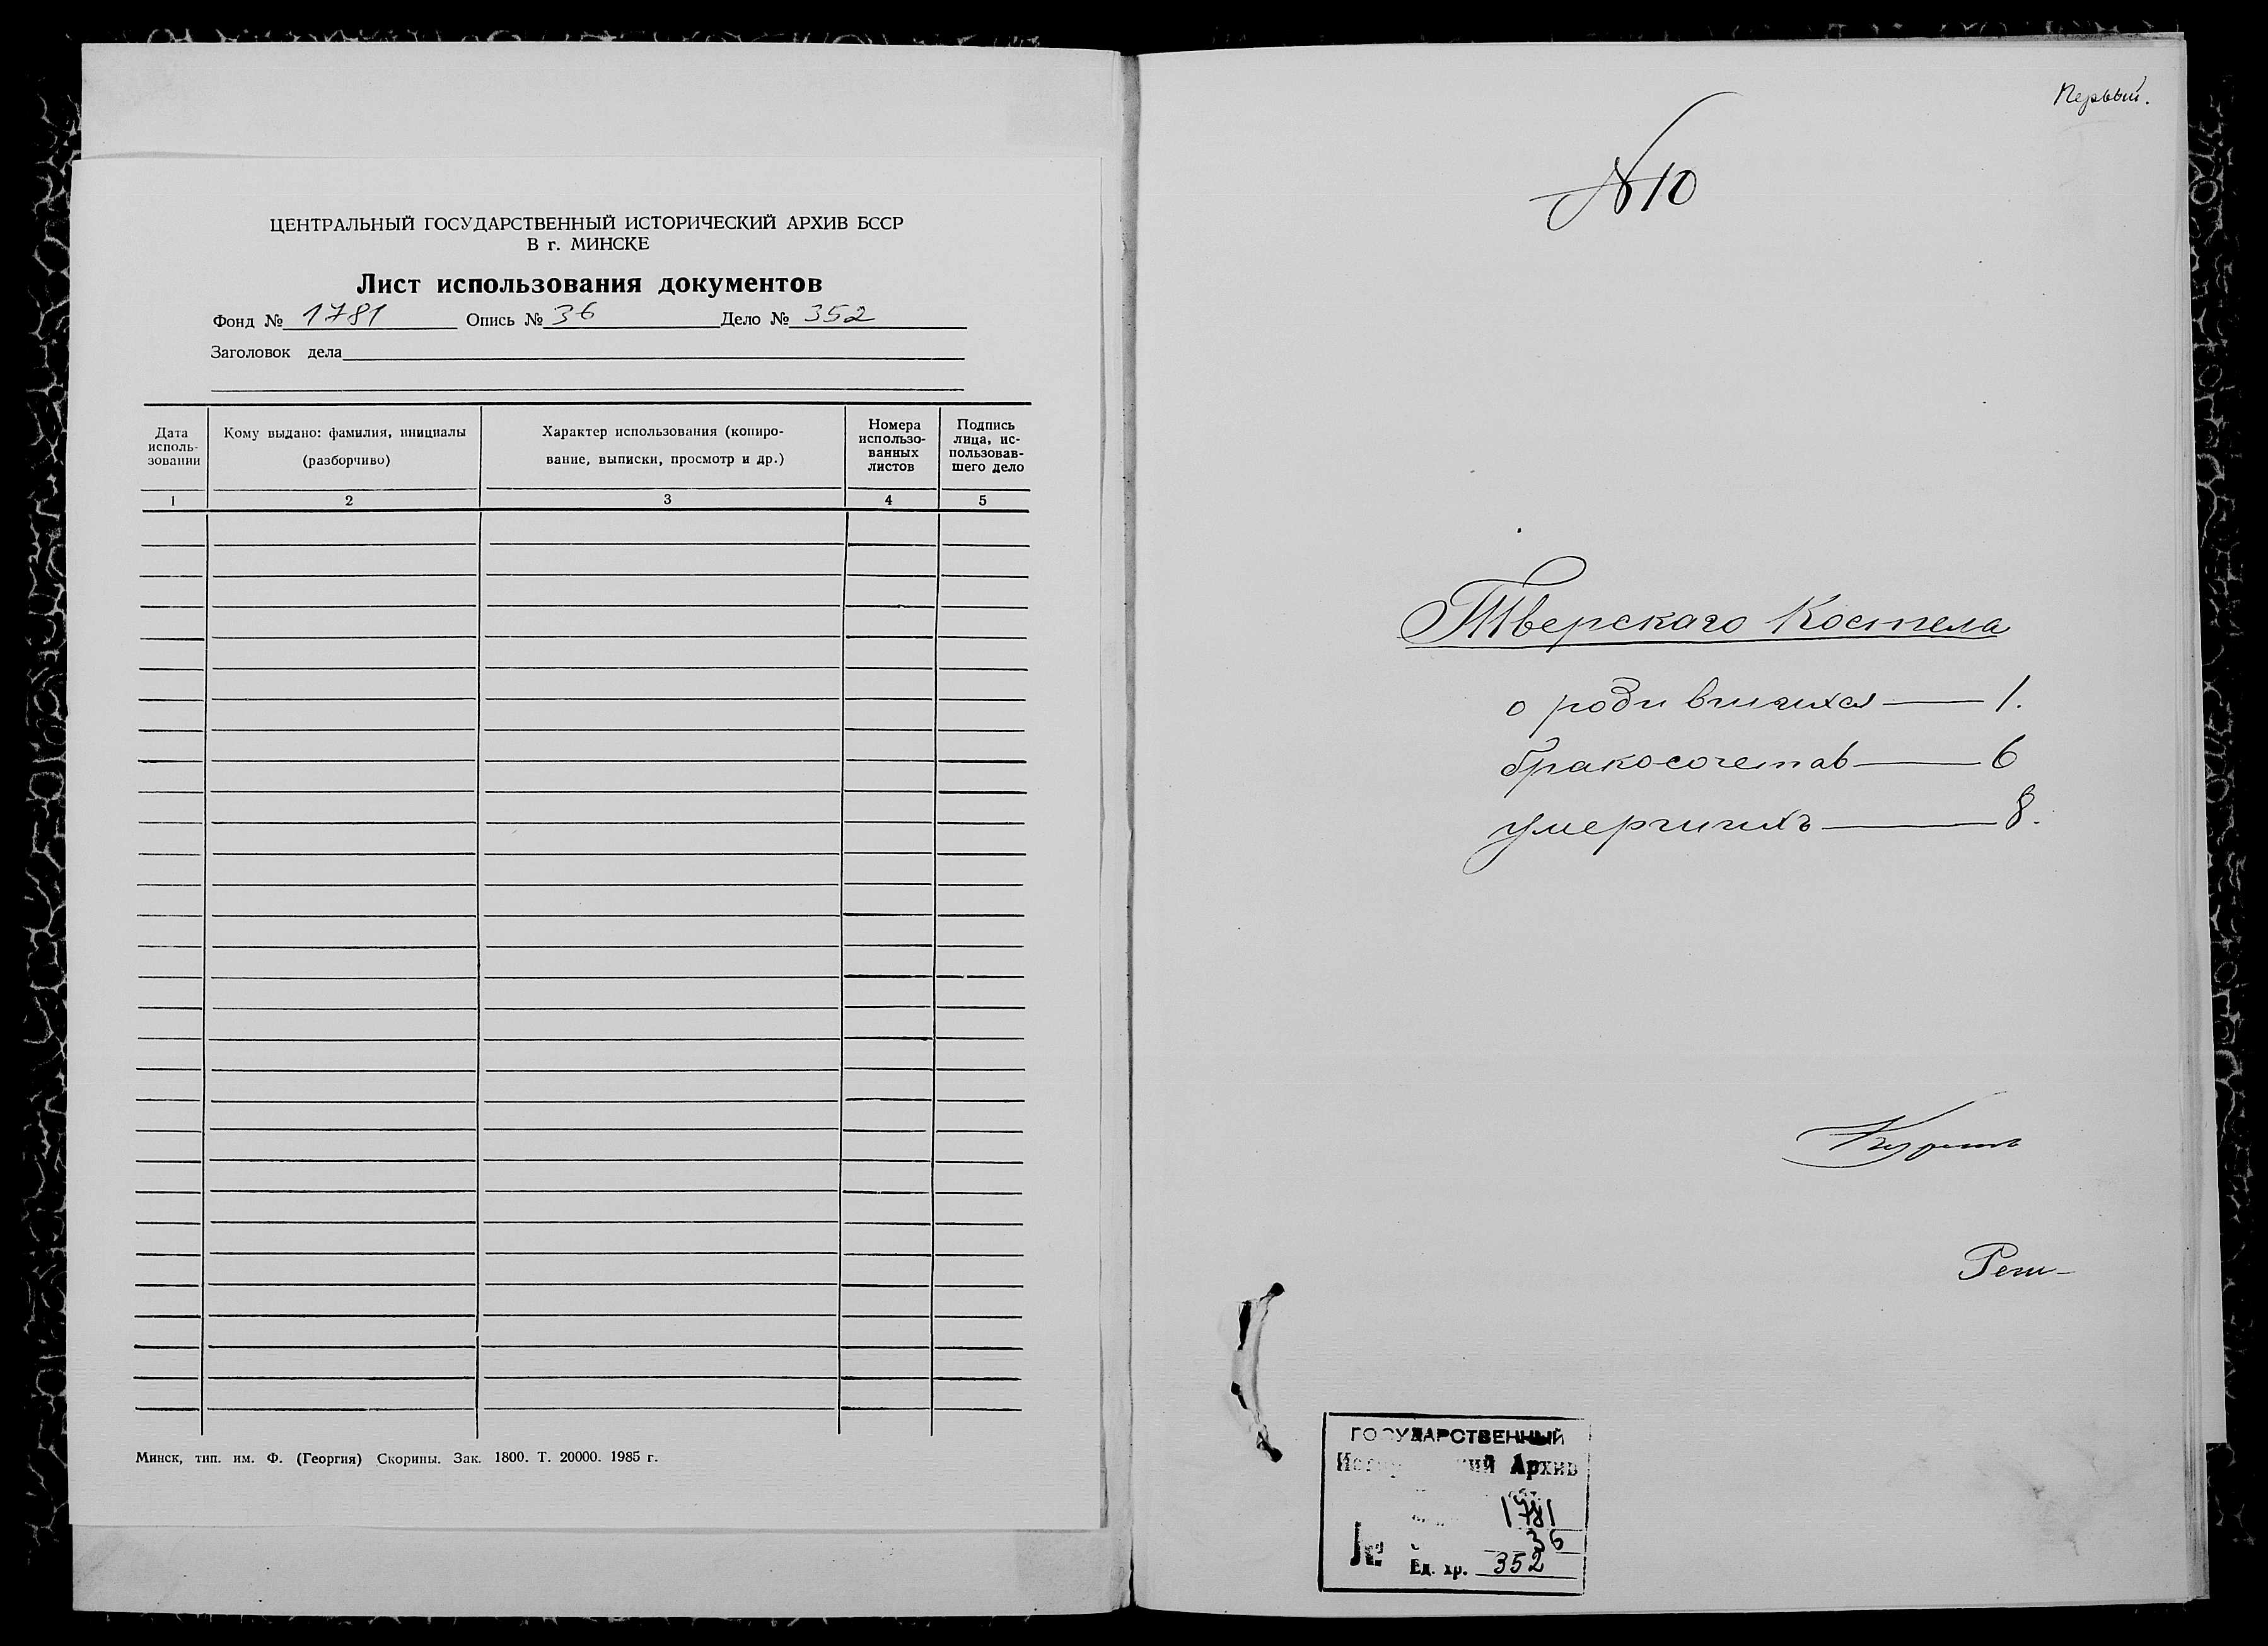 ЦЕНТРАЛЬНЫЙ ГОСУДАРСТВЕННЫЙ ИСТОРИЧЕСКИЙ АРХИВ БССР
В г. МИНСКЕ
Лист использования документов
Фонд № 1781 Опись № 36 Дело № 352
Заголовок дела
Дата исполь-зовании
Кому выдано: фамилия, инициалы
(разборчиво)
Характер использования (копиро-
вание, выписки, просмотр и др.)
Номера
использо-
ванных
листов
Подпись
лица, ис-
пользовав-
шего дело
1 2 3 4 5
Минск, тип. им. Ф. (Георгия) Скорины. Зак. 1800. Т. 20000. 1985 г.
Первый.
№ 10
Тверскаго Костела
о родившихся — 1.
бракосочетав — 6
умерших — 8.
ГОСУДАРСТВЕННЫЙ
Архив
1781
36
№
Ед. хр. 352